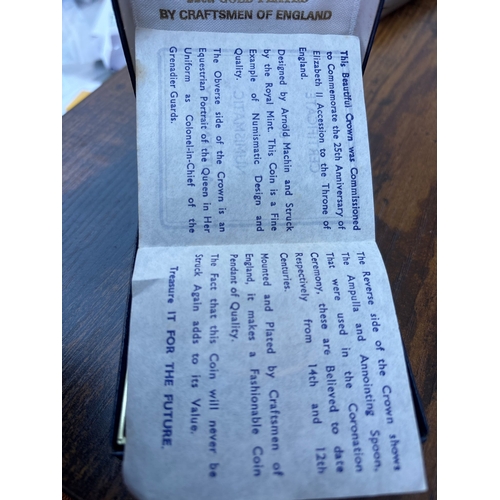 22ct GOLD PLATED
BY CRAFTSMEN OF ENGLAND
This Beautiful Crown was Commissioned
to Commemorate the 25th Anniversary of
Elizabeth II Accession to the Throne of
England.
Designed by Arnold Machin and Struck
by the Royal Mint. This Coin is a Fine
Example of Numismatic Design and
Quality.
The Obverse side of the Crown is an
Equestrian Portrait of the Queen in Her
Uniform as Colonel-in-Chief of the
Grenadier Guards.
The Reverse side of the Crown shows
The Ampulla and Annointing Spoon,
That were used in the Coronation
Ceremony, these are Believed to date
Respectively from 14th and 12th
Centuries.
Mounted and Plated by Craftsmen of
England, it makes a Fashionable Coin
Pendant of Quality.
The Fact that this Coin will never be
Struck Again adds to its Value.
Treasure IT FOR THE FUTURE.